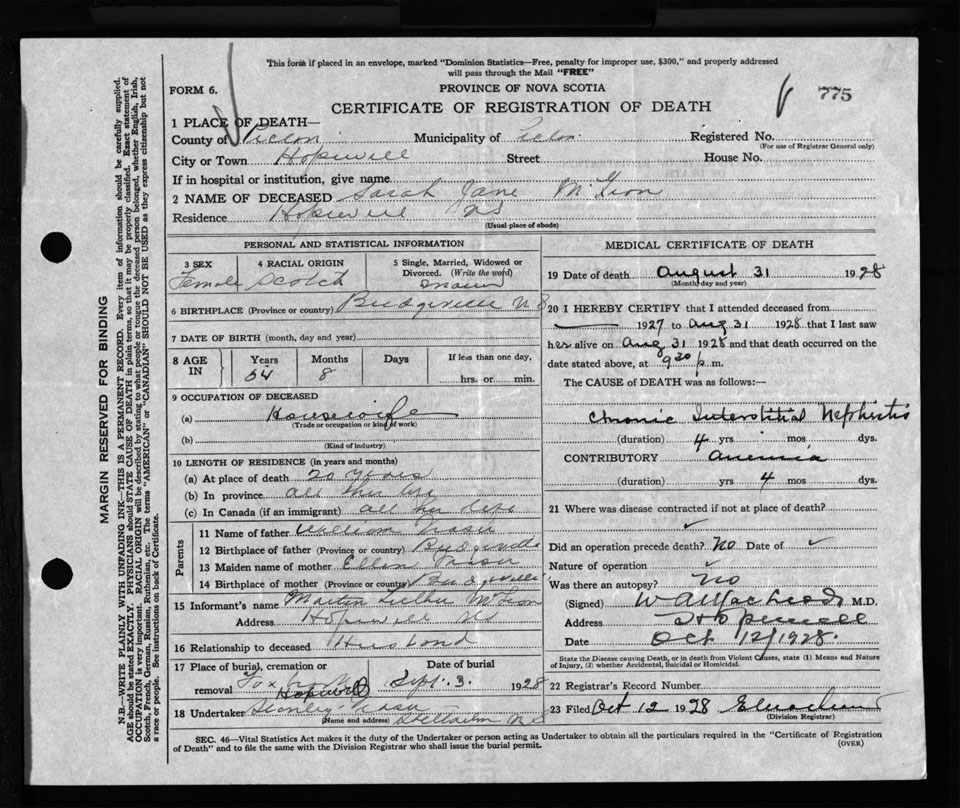 This form if placed in an envelope, marked "Dominion Statistics—Free, penalty for improper use, $300," and properly addressed
will pass through the Mail "FREE"
FORM 6.
PROVINCE OF NOVA SCOTIA
775
CERTIFICATE OF REGISTRATION OF DEATH
1 PLACE OF DEATH—
County of Pictou Municipality of Pictou Registered No.
(For use of Registrar General only)
City or Town Hopewell Street House No.
If in hospital or institution, give name
2 NAME OF DECEASED Sarah Jane
Residence Hopewell NS
(Usual place of abode)
PERSONAL AND STATISTICAL INFORMATION
3 SEX
Female
4 RACIAL ORIGIN
Scotch
5 Single, Married, Widowed or
Divorced. (Write the word)
6 BIRTHPLACE (Province or country) Bridgeville NS
7 DATE OF BIRTH (month, day and year)
8 AGE
IN
Years Months Days If less than one day,
8 hrs. or min.
9 OCCUPATION OF DECEASED
(a) Housewife
(Trade or occupation or kind of work)
(b)
(Kind of industry)
10 LENGTH OF RESIDENCE (in years and months)
(a) At place of death 20 years
(b) In province all her life
(c) In Canada (if an immigrant) all her life
Parents
11 Name of father William
12 Birthplace of father (Province or country) Bridgeville
13 Maiden name of mother Ellen
14 Birthplace of mother (Province or country) Bridgeville
15 Informant's name Martin Luther
Address Hopewell NS
16 Relationship to deceased Husband
17 Place of burial, cremation or
removal Hopewell
Date of burial
Sept. 3. 1928
18 Undertaker Stanley
(Name and address) NS
MEDICAL CERTIFICATE OF DEATH
19 Date of death August 31 1928
(Month, day and year)
20 I HEREBY CERTIFY that I attended deceased from
1927 to Aug 31 1928 that I last saw
her alive on Aug 31 1928 and that death occurred on
date stated above, at 9 30 p.m.
The CAUSE of DEATH was as follows:—
Chronic Interstitial Nephritis
(duration) 4 yrs. mos. dys.
CONTRIBUTORY Anemia
(duration) yrs. 4 mos. dys.
21 Where was disease contracted if not at place of death?
Did an operation precede death? No Date of
Nature of operation
Was there an autopsy? No
(Signed) W A MacLeod M.D.
Address Hopewell
Date Oct 12/1928.
State the Disease causing Death, or in death from Violent Causes, state (1) Means and Nature of
Injury, (2) whether Accidental, Suicidal or Homicidal.
22 Registrar's Record Number
23 Filed Oct 12 1928
(Division Registrar)
SEC. 46—Vital Statistics Act makes it the duty of the Undertaker or person acting as Undertaker to obtain all the particulars required in the "Certificate of Registration
of Death" and to file the same with the Division Registrar who shall issue the burial permit.
(OVER)
MARGIN RESERVED FOR BINDING
N.B.—WRITE PLAINLY WITH UNFADING INK—THIS IS A PERMANENT RECORD. Every item of information should be carefully supplied.
AGE should be stated EXACTLY. PHYSICIANS should STATE CAUSE OF DEATH in plain terms, so that it may be properly classified. Exact statement of
OCCUPATION is very important. RACIAL ORIGIN will be described by stating to what people or tongue the deceased person belonged, whether English, Irish,
Scotch, French, German, Russian, Ruthenian, etc. The terms "AMERICAN" or "CANADIAN" SHOULD NOT BE USED as they express citizenship but not
a race or people. See instructions on back of Certificate.